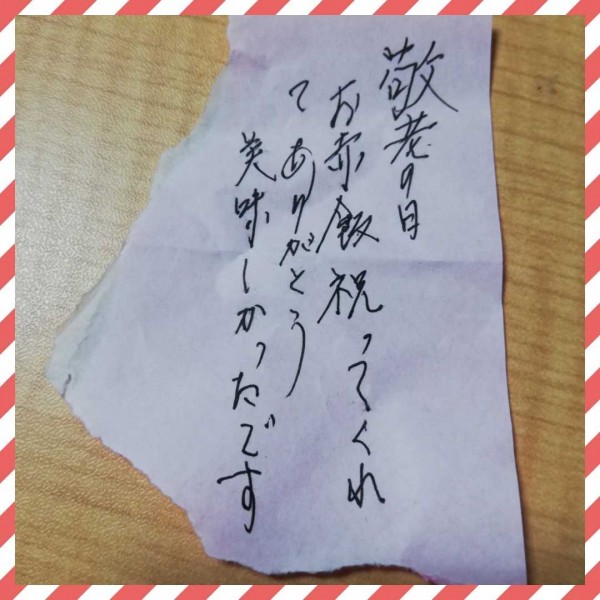 敬老の日
お赤飯祝ってくれ
てありがとう
美味しかったです